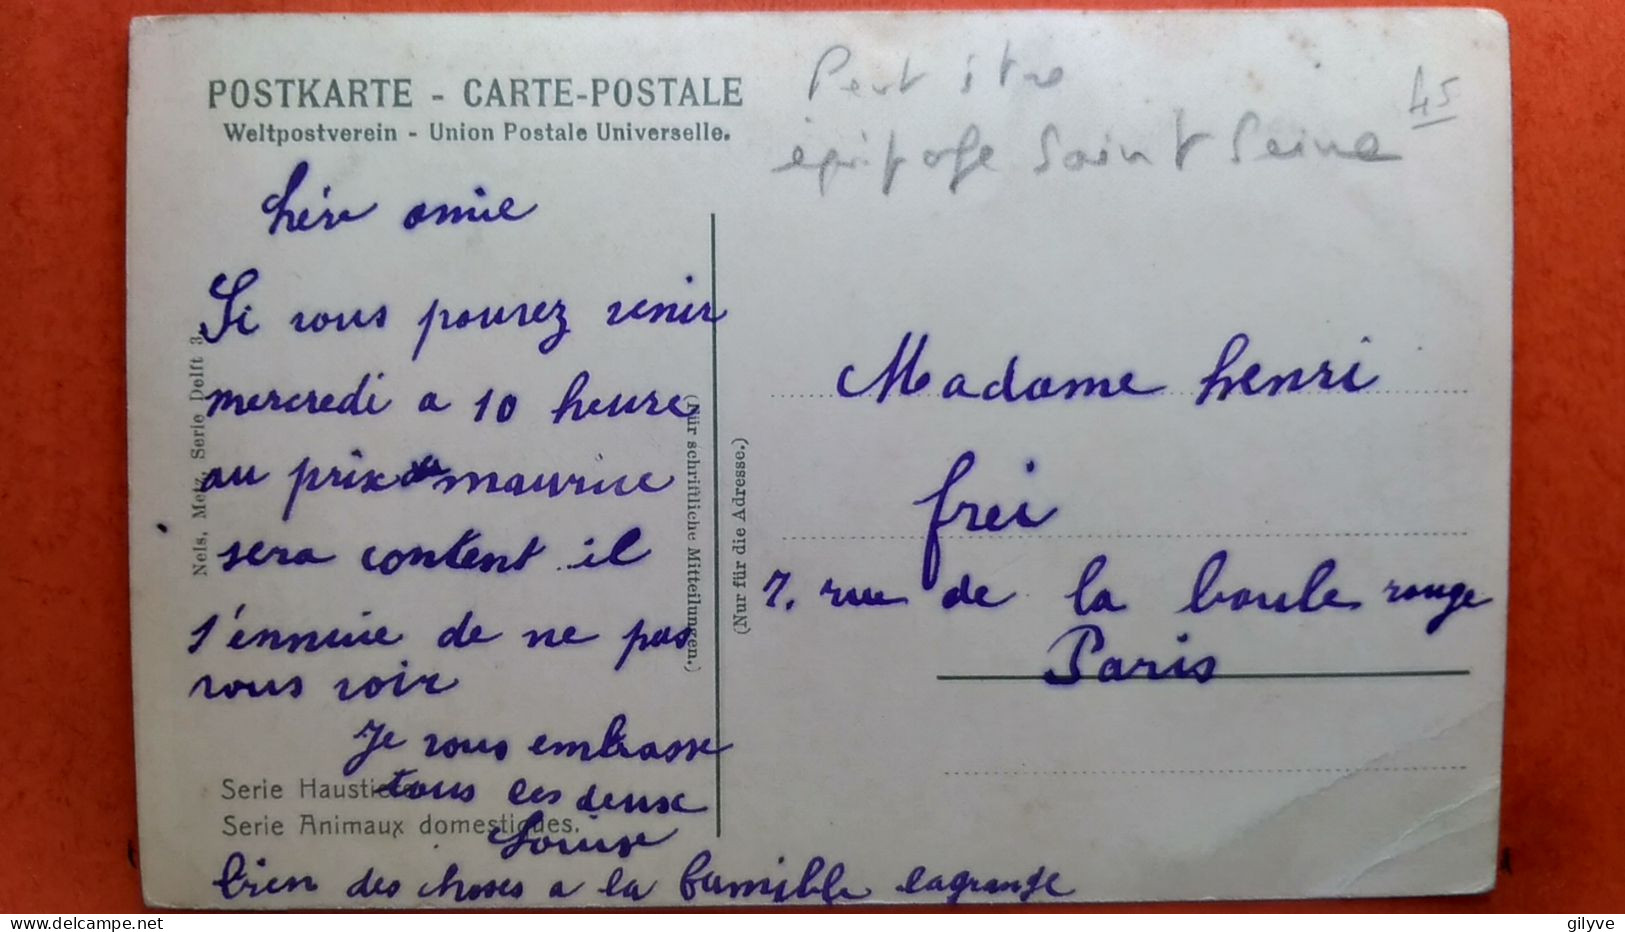 POSTKARTE - CARTE-POSTALE
Weltpostverein - Union Postale Universelle.
Peut être
épitoge Saint Seine
45
hére amie
Si vous pouvez venir
mercredi a 10 heure
au prix maurice
sera content il
s'ennuie de ne pas
vous voir
Je vous embrasse
tous les deux
Louise
bien des choses a la famille lagrange
Nels, Metz, Serie Delft 3.
(Nur für schriftliche Mitteilungen.)
(Nur für die Adresse.)
Madame henri
frei
7. rue de la boule rouge
Paris
Serie Haustie
Serie Animaux domestiques.
gilyve